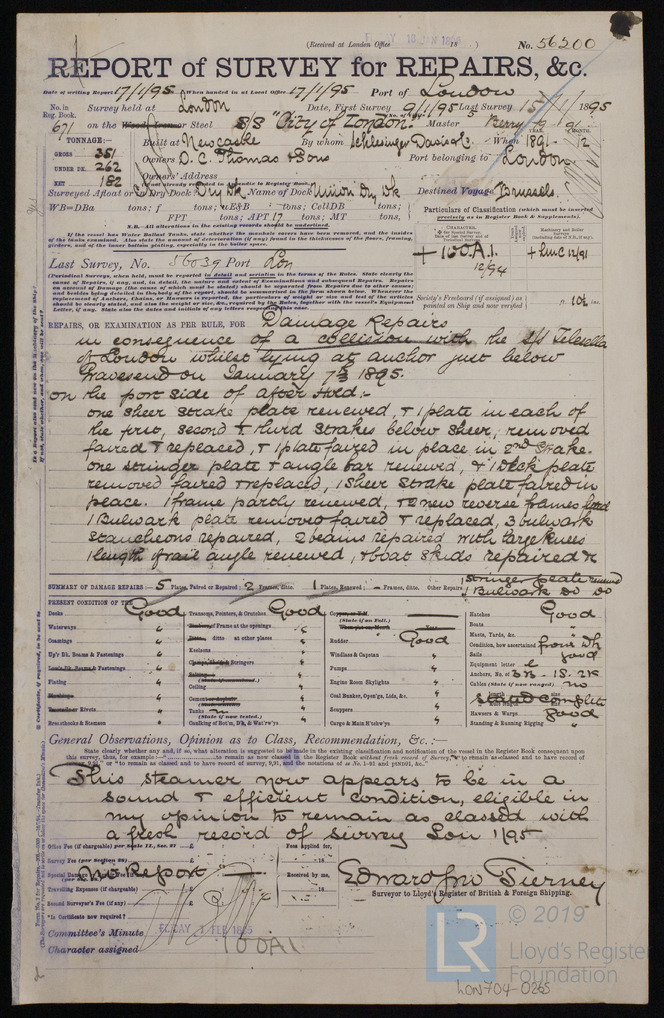 (Received at London Office 18 )
No. 56200
REPORT of SURVEY for REPAIRS, &c.
Date of writing Report 17/1/95 When handed in at Local Office 17/1/95 Port of London
No. in Reg. Book. Survey held at London Date, First Survey 9/1/95 Last Survey 15/1/1895
671 on the Wood Iron or Steel SS "City of London" Master Kerry
TONNAGE:— Built at Newcastle By whom When 1891 12
GROSS 351
UNDER DK. 262
NET 182
Owners D. C. Thomas & Sons Port belonging to London
Owners' Address
Surveyed Afloat or in Dry Dock Dry Dk Name of Dock Union Dry Dk Destined Voyage Brussels
WB=DBa tons; f tons; uE&B tons; CellDB tons;
FPT tons; APT 17 tons; MT tons,
N.B.—All alterations in the existing records should be underlined.
Particulars of Classification (which must be inserted precisely as in Register Book & Supplements).
+100A.1. + LMC 12/91
12/94
Last Survey, No. 56039 Port Lon
Society's Freeboard (if assigned) as painted on Ship and now verified ft. 10½ ins.
REPAIRS, OR EXAMINATION AS PER RULE, FOR Damage Repairs
in consequence of a collision with the s/s
of London whilst lying at anchor just below
Gravesend on January 7th 1895.
on the port side of after Hold:-
one sheer strake plate renewed, & 1 plate in each of
the first, second & third strakes below sheer, removed
faired & replaced, & 1 plate faired in place in 2nd Strake.
one stringer plate & angle bar renewed, & 1 Deck plate
removed faired & replaced, 1 Sheer Strake plate faired in
peace. 1 frame partly renewed, & 2 new reverse frames
1 Bulwark plate removed faired & replaced, 3 bulwark
Stauncheons repaired, 2 beams repaired with large knees
1 length of rail angle renewed, & boat skids repaired &c
SUMMARY OF DAMAGE REPAIRS — 5 Plates, Faired or Repaired; 2 Frames, ditto. 1 Plates, Renewed; — Frames, ditto. Other Repairs, 1 Stringer plate renewed
1 Bulwark do do
PRESENT CONDITION OF THE
Decks Good
Waterways "
Coamings "
Up'r Dk. Beams & Fastenings "
Low'r Dk. Beams & Fastenings
Plating "
Rivets "
Breasthooks & Stemson "
Transoms, Pointers, & Crutches Good
Frame at the openings "
ditto at other places "
Keelsons "
Stringers "
Ceiling "
Cement
Tanks
(State if now tested.)
Caulking of Bot'm, Dk, & Wat'rw'ys "
(State if on Felt.)
Rudder Good
Windlass & Capstan "
Pumps "
Engine Room Skylights "
Coal Bunker, Open'gs, Lids, &c. "
Scuppers "
Cargo & Main H'tchw'ys "
Hatches Good
Boats "
Masts, Yards, &c. "
Condition, how ascertained from Dk
Sails good
Equipment letter
Anchors, No. of 3B. 1S. 2K
Cables (State if now ranged) no
stated complete
Hawsers & Warps good
Standing & Running Rigging "
General Observations, Opinion as to Class, Recommendation, &c. :—
State clearly whether any and, if so, what alteration is suggested to be made in the existing classification and notification of the vessel in the Register Book consequent upon
This steamer now appears to be in a
sound & efficient condition, eligible in
my opinion to remain as classed with
a fresh record of survey Lon 1/95
Office Fee (if chargeable) per Scale II., Sec. 27) £ Fees applied for,
Survey Fee (per Section 28) £ 18
Special Damage No Report Received by me,
Travelling Expenses (if chargeable) £ 18
Second Surveyor's Fee (if any) £
Is Certificate now required?
Edward Jno Tierney
Surveyor to Lloyd's Register of British & Foreign Shipping.
Committee's Minute FRIDAY 1 FEB 1895
Character assigned 100A1
© 2019
LR
Lloyd's Register
Foundation
LON-704-0265